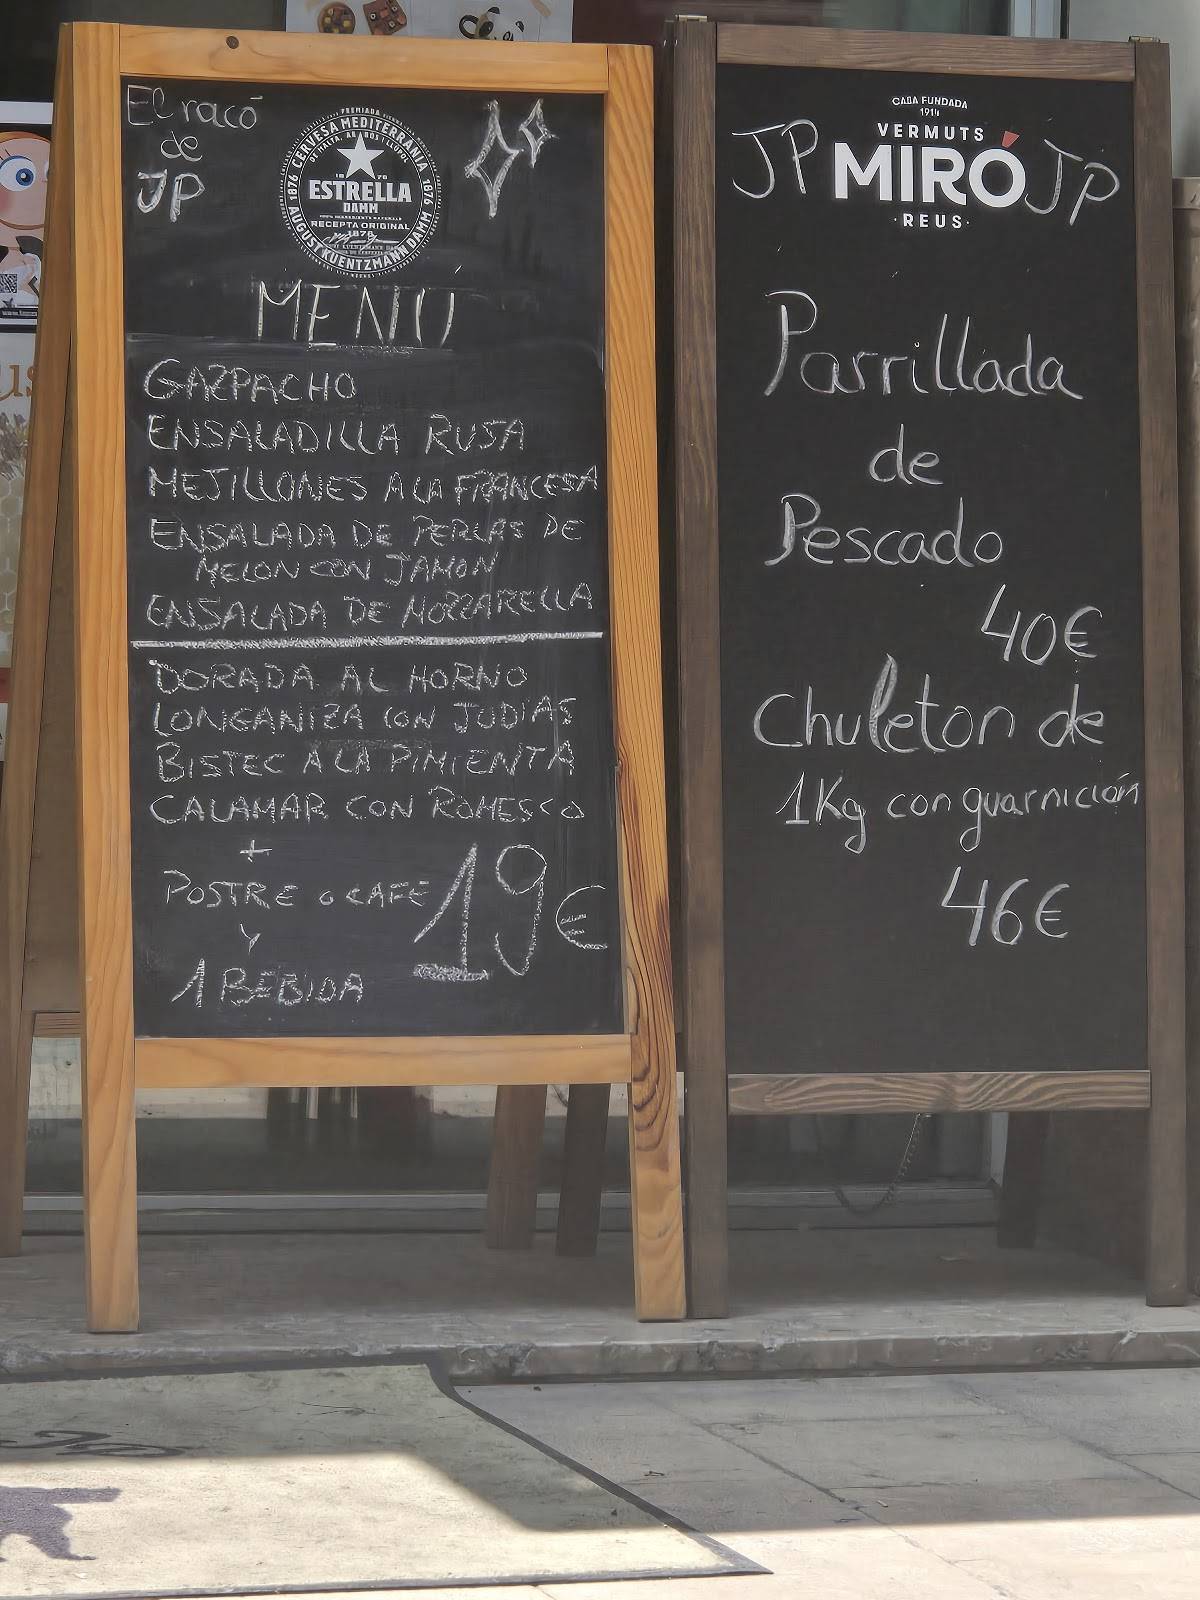 El racó
de
JP
PREMIADA
CERVESA MEDITERRÀNIA
1876
1876
ESTRELLA
DAMM
RECEPTA ORIGINAL
1876
AUGUST KUENTZMANN DAMM
MENU
GAZPACHO
ENSALADILLA RUSA
MEJILLONES A LA FRANCESA
ENSALADA DE PERLAS DE
MELON CON JAMON
ENSALADA DE MOZZARELLA
DORADA AL HORNO
LONGANIZA CON JUDIAS
BISTEC A LA PIMIENTA
CALAMAR CON ROMESCO
+
POSTRE O CAFE
19€
Y
1 BEBIDA
CASA FUNDADA
VERMUTS
JP MIRÓ JP
·REUS·
Parrillada
de
Pescado
40€
Chuleton de
1Kg con guarnición
46€